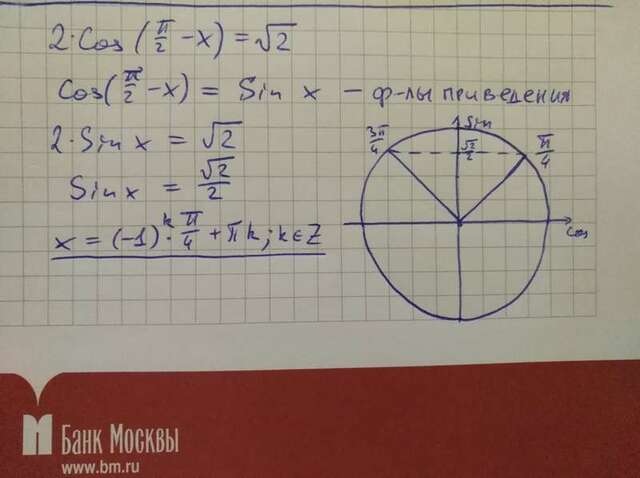 2·Cos(π/2 −x)=√2
Cos(π/2 −x) = Sin x − ф-лы приведения
2·Sin x = √2
Sin x = √2/2
x = (−1)^k·π/4 + πk; k∈Z
Sin
3π/4
√2/2
π/4
Cos
Банк Москвы
www.bm.ru